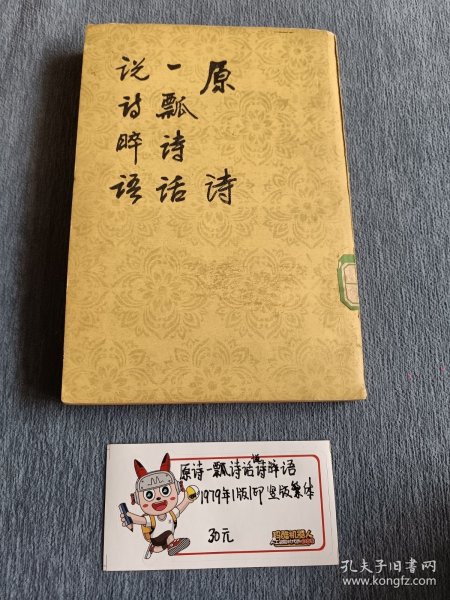 原诗
一瓢诗话
说诗晬语
原诗一瓢诗话说诗晬语
1979年1版1印竖版繁体
30元
孔夫子旧书网
www.kongfz.com